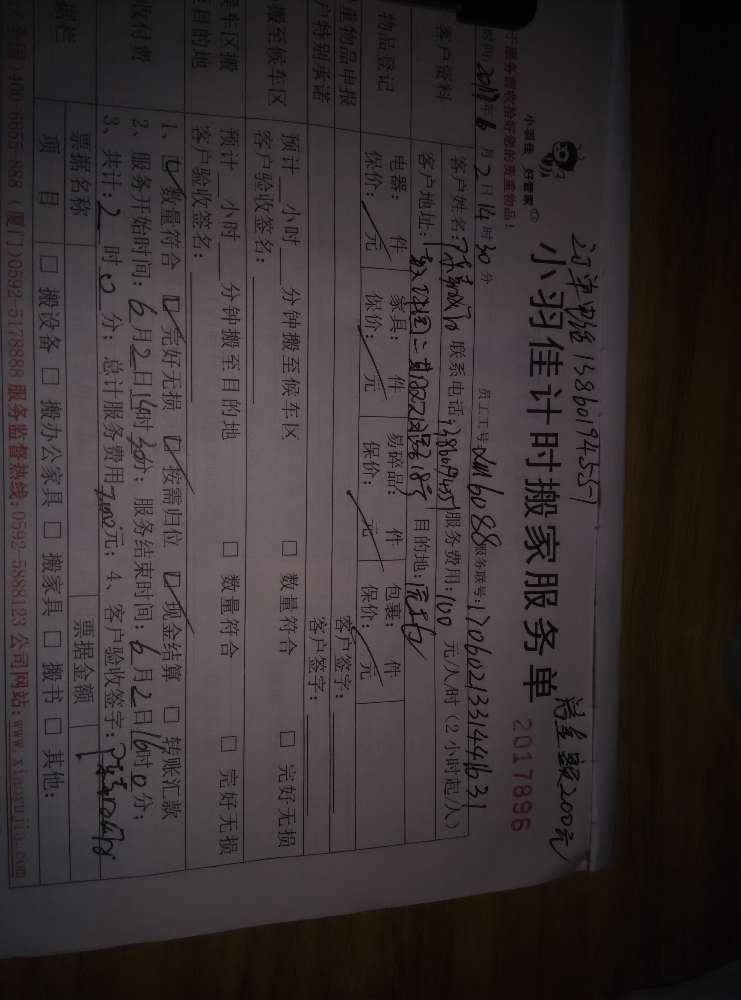 订单电话 13860194551
总金额200元
小羽佳 好管家
小羽佳计时搬家服务单
2017896
于服务前收拾好您的贵重物品！
时间：2017年6月2日14时30分 员工工号：XM6088 服务联号：1706021331441631
客户资料 客户姓名： 联系电话： 服务费用：100 元/人/时（2小时起/人）
客户地址： 目的地：
物品登记 电器： 件 家具： 件 易碎品： 件 包裹： 件
保价： 元 保价： 元 保价： 元 保价： 元
重物品申报 客户签字：
户特别承诺 客户签字：
搬至候车区 预计 小时 分钟搬至候车区 □ 数量符合 □ 完好无损
客户验收签名：
候车区搬 预计 小时 分钟搬至目的地 □ 数量符合 □ 完好无损
至目的地 客户验收签名：
收付费 1、☑ 数量符合 ☑ 完好无损 ☑ 按需归位 ☑ 现金结算 □ 转账汇款
2、服务开始时间：6月2日14时30分；服务结束时间：6月2日16时0分；
3、共计：2时0分；总计服务费用200元；4、客户验收签字：
票据名称 票据金额
项目 □ 搬设备 □ 搬办公家具 □ 搬家具 □ 搬书 □ 其他：
400-6665-888（厦门）0592-5178888 服务监督热线：0592-5888123 公司网站：www.xiaoyujia.com